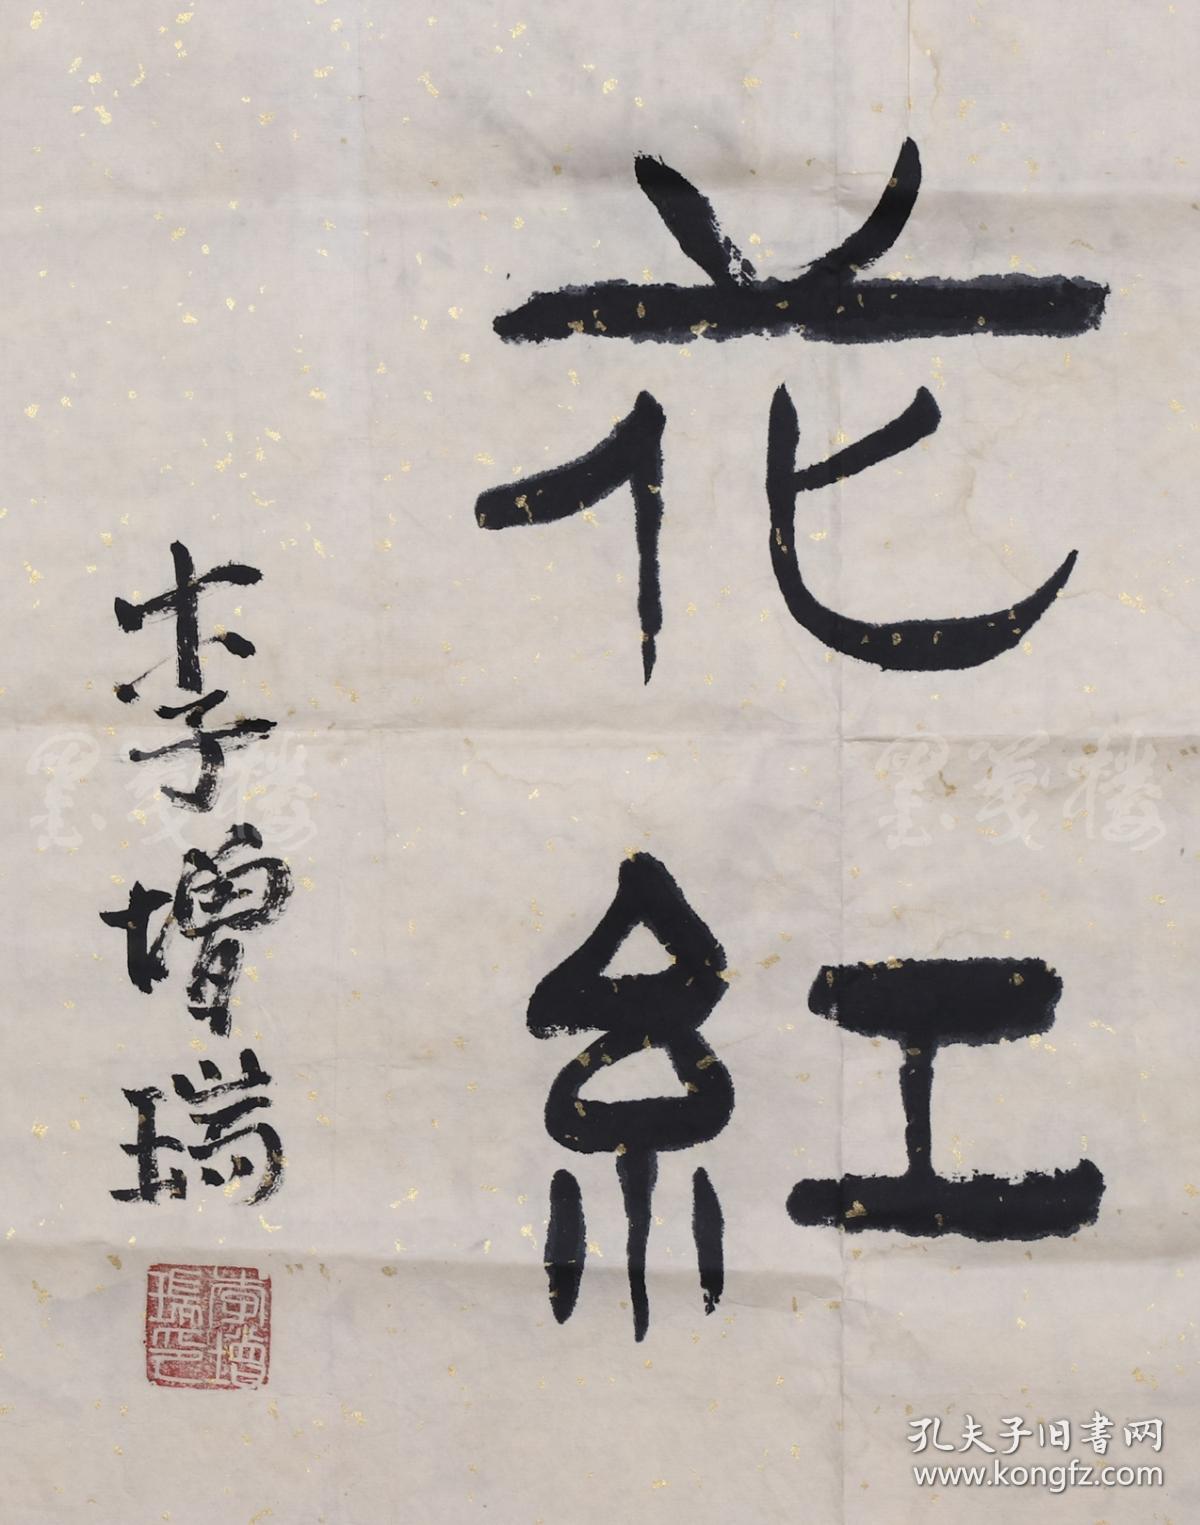 花紅
李增瑞
李增瑞印
墨笺楼
墨笺楼
孔夫子旧書网
www.kongfz.com